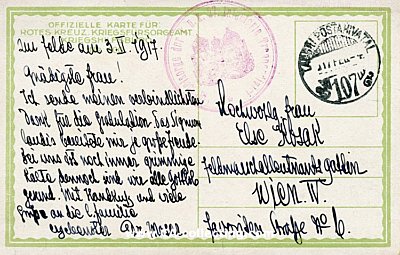 OFFIZIELLE KARTE FÜR
ROTES KREUZ, KRIEGSFÜRSORGEAMT
Im Felde am 3. II 1917
Gnädigste Frau!
Ich sende meinen verbindlichsten
Dank für die Gratulation. Das Signum
laudis bereitete mir große Freude.
Bei uns ist noch immer grimmige
Kälte dennoch sind wir alle Gottlob
gesund. Mit Handkuß und viele
Grüße an die l. Familie
TÁBORI POSTAHIVATAL
107
Hochwohlg. Frau
Else
Feldmarschalleutnants Gattin
Wien IV.
Favoriten Straße No 6.